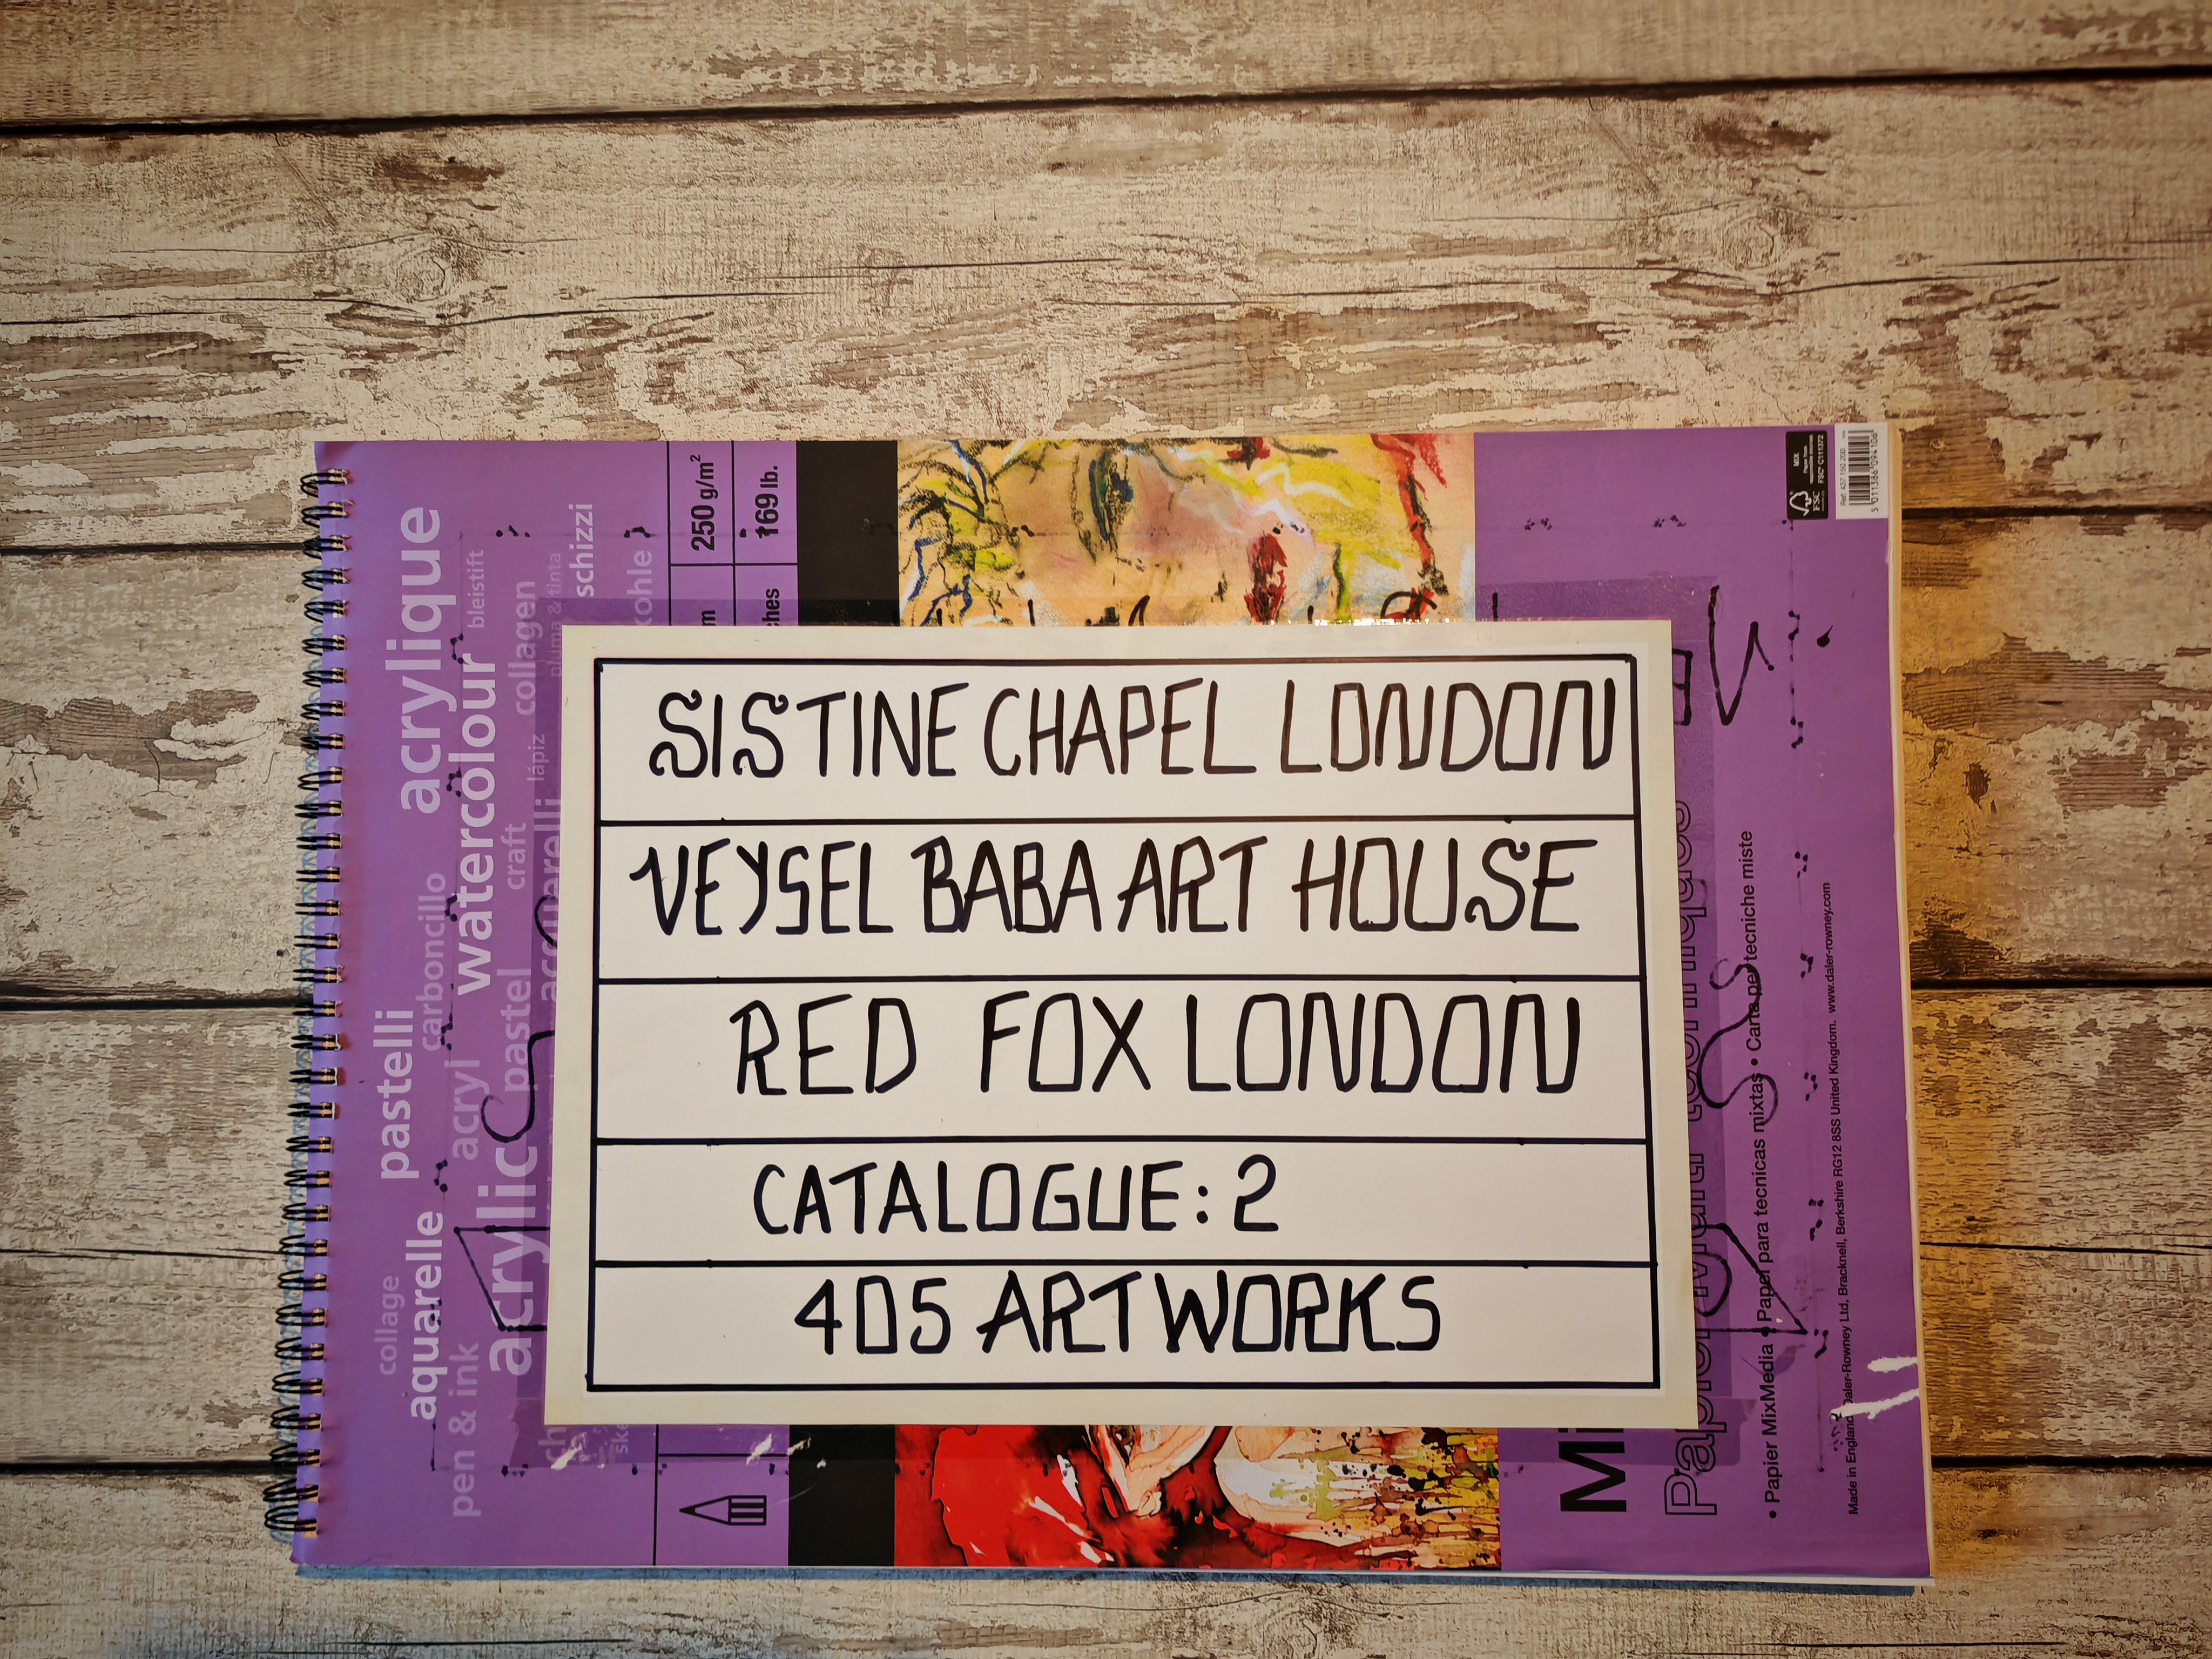 SISTINE CHAPEL LONDON
VEYSEL BABA ART HOUSE
RED FOX LONDON
CATALOGUE: 2
405 ARTWORKS
acrylique
watercolour
bleistift
collagen
pluma & tinta
schizzi
kohle
lápiz
craft
carboncillo
pastel
pastelli
acryl
acrylic
aquarelle
collage
pen & ink
250 g/m²
169 lb.
• Papier MixMedia • Papel para tecnicas mixtas • Carta per tecniche miste
Made in England Daler-Rowney Ltd, Bracknell, Berkshire RG12 8SS United Kingdom. www.daler-rowney.com
MIX
FSC
FSC® C111372
Ref: 437 150 200
5 011386 094106